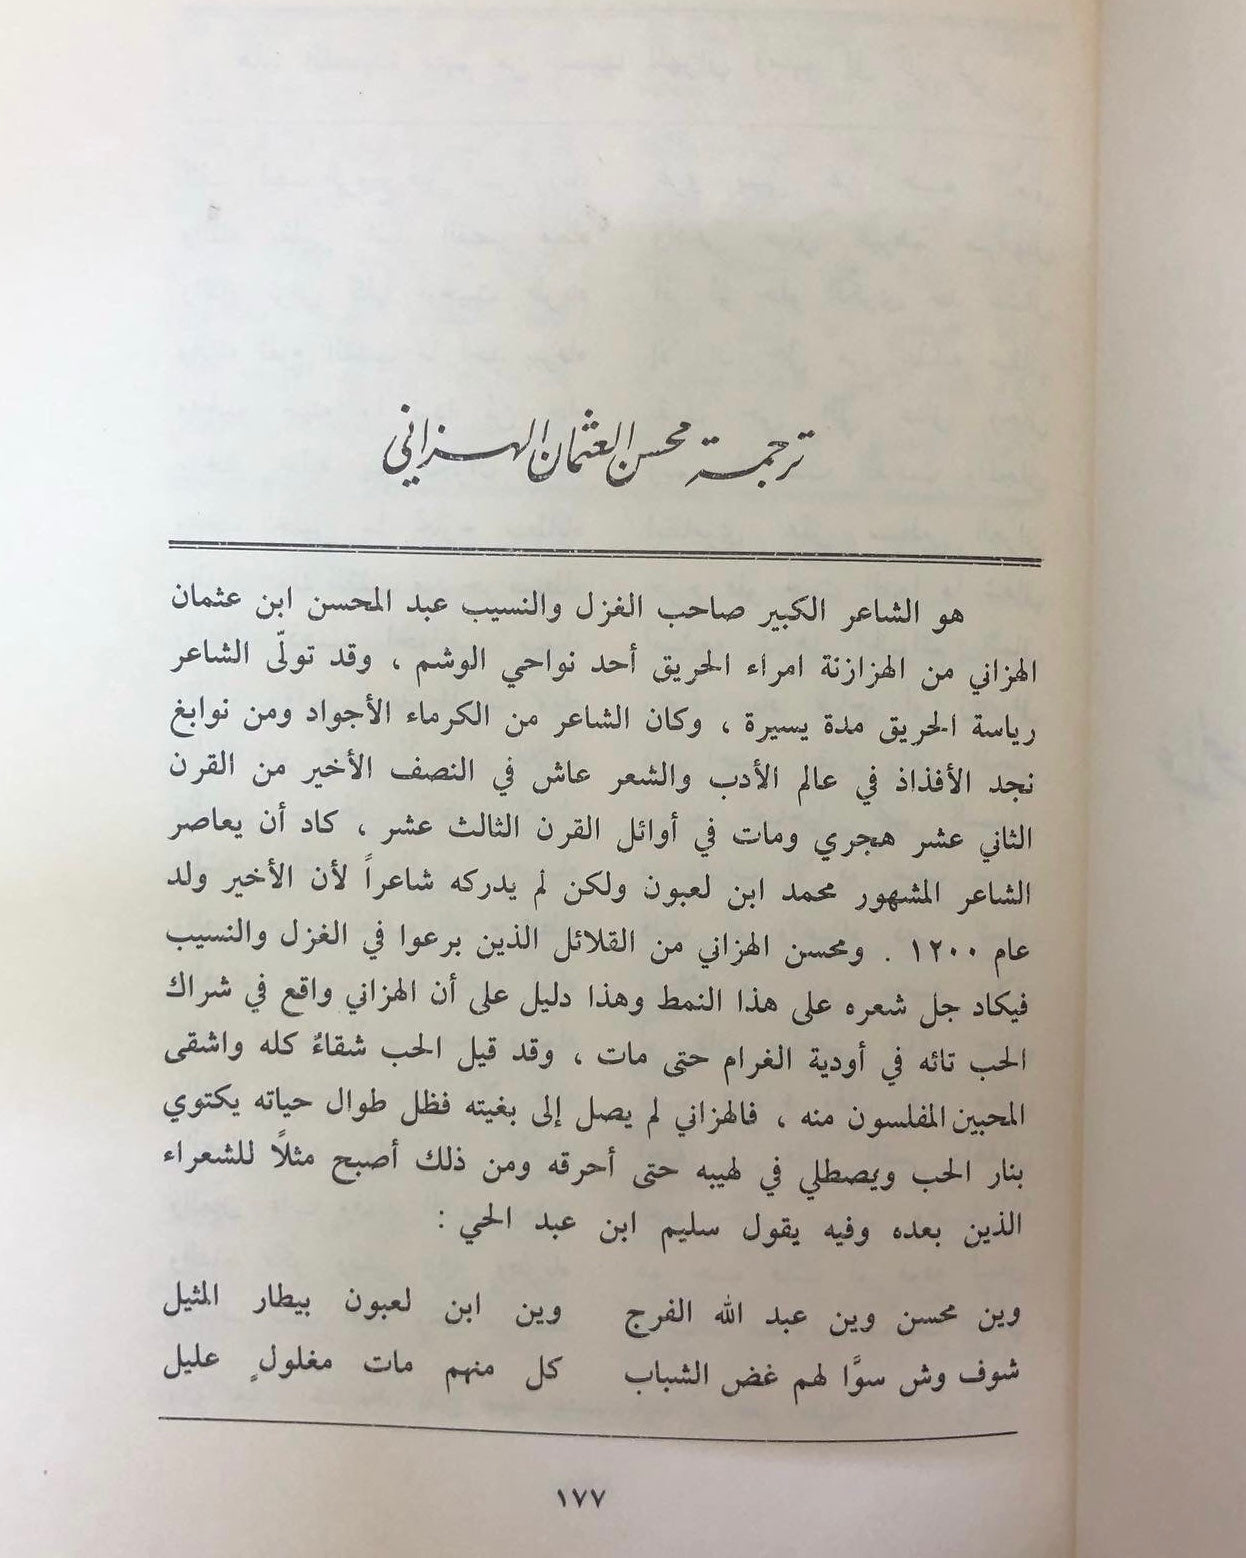 ترجمة محسن العثمان الهزاني
هو الشاعر الكبير صاحب الغزل والنسيب عبد المحسن ابن عثمان
الهزاني من الهزازنة امراء الحريق أحد نواحي الوشم ، وقد تولّى الشاعر
رياسة الحريق مدة يسيرة ، وكان الشاعر من الكرماء الأجواد ومن نوابغ
نجد الأفذاذ في عالم الأدب والشعر عاش في النصف الأخير من القرن
الثاني عشر هجري ومات في أوائل القرن الثالث عشر ، كاد أن يعاصر
الشاعر المشهور محمد ابن لعبون ولكن لم يدركه شاعراً لأن الأخير ولد
عام ١٢٠٠ . ومحسن الهزاني من القلائل الذين برعوا في الغزل والنسيب
فيكاد جل شعره على هذا النمط وهذا دليل على أن الهزاني واقع في شراك
الحب تائه في أودية الغرام حتى مات ، وقد قيل الحب شقاءٌ كله واشقى
المحبين المفلسون منه ، فالهزاني لم يصل إلى بغيته فظل طوال حياته يكتوي
بنار الحب ويصطلي في لهيبه حتى أحرقه ومن ذلك أصبح مثلاً للشعراء
الذين بعده وفيه يقول سليم ابن عبد الحي :
وين محسن وين عبد الله الفرج وين ابن لعبون بيطار المثيل
شوف وش سوَّا لهم غض الشباب كل منهم مات مغلولٍ عليل
١٧٧